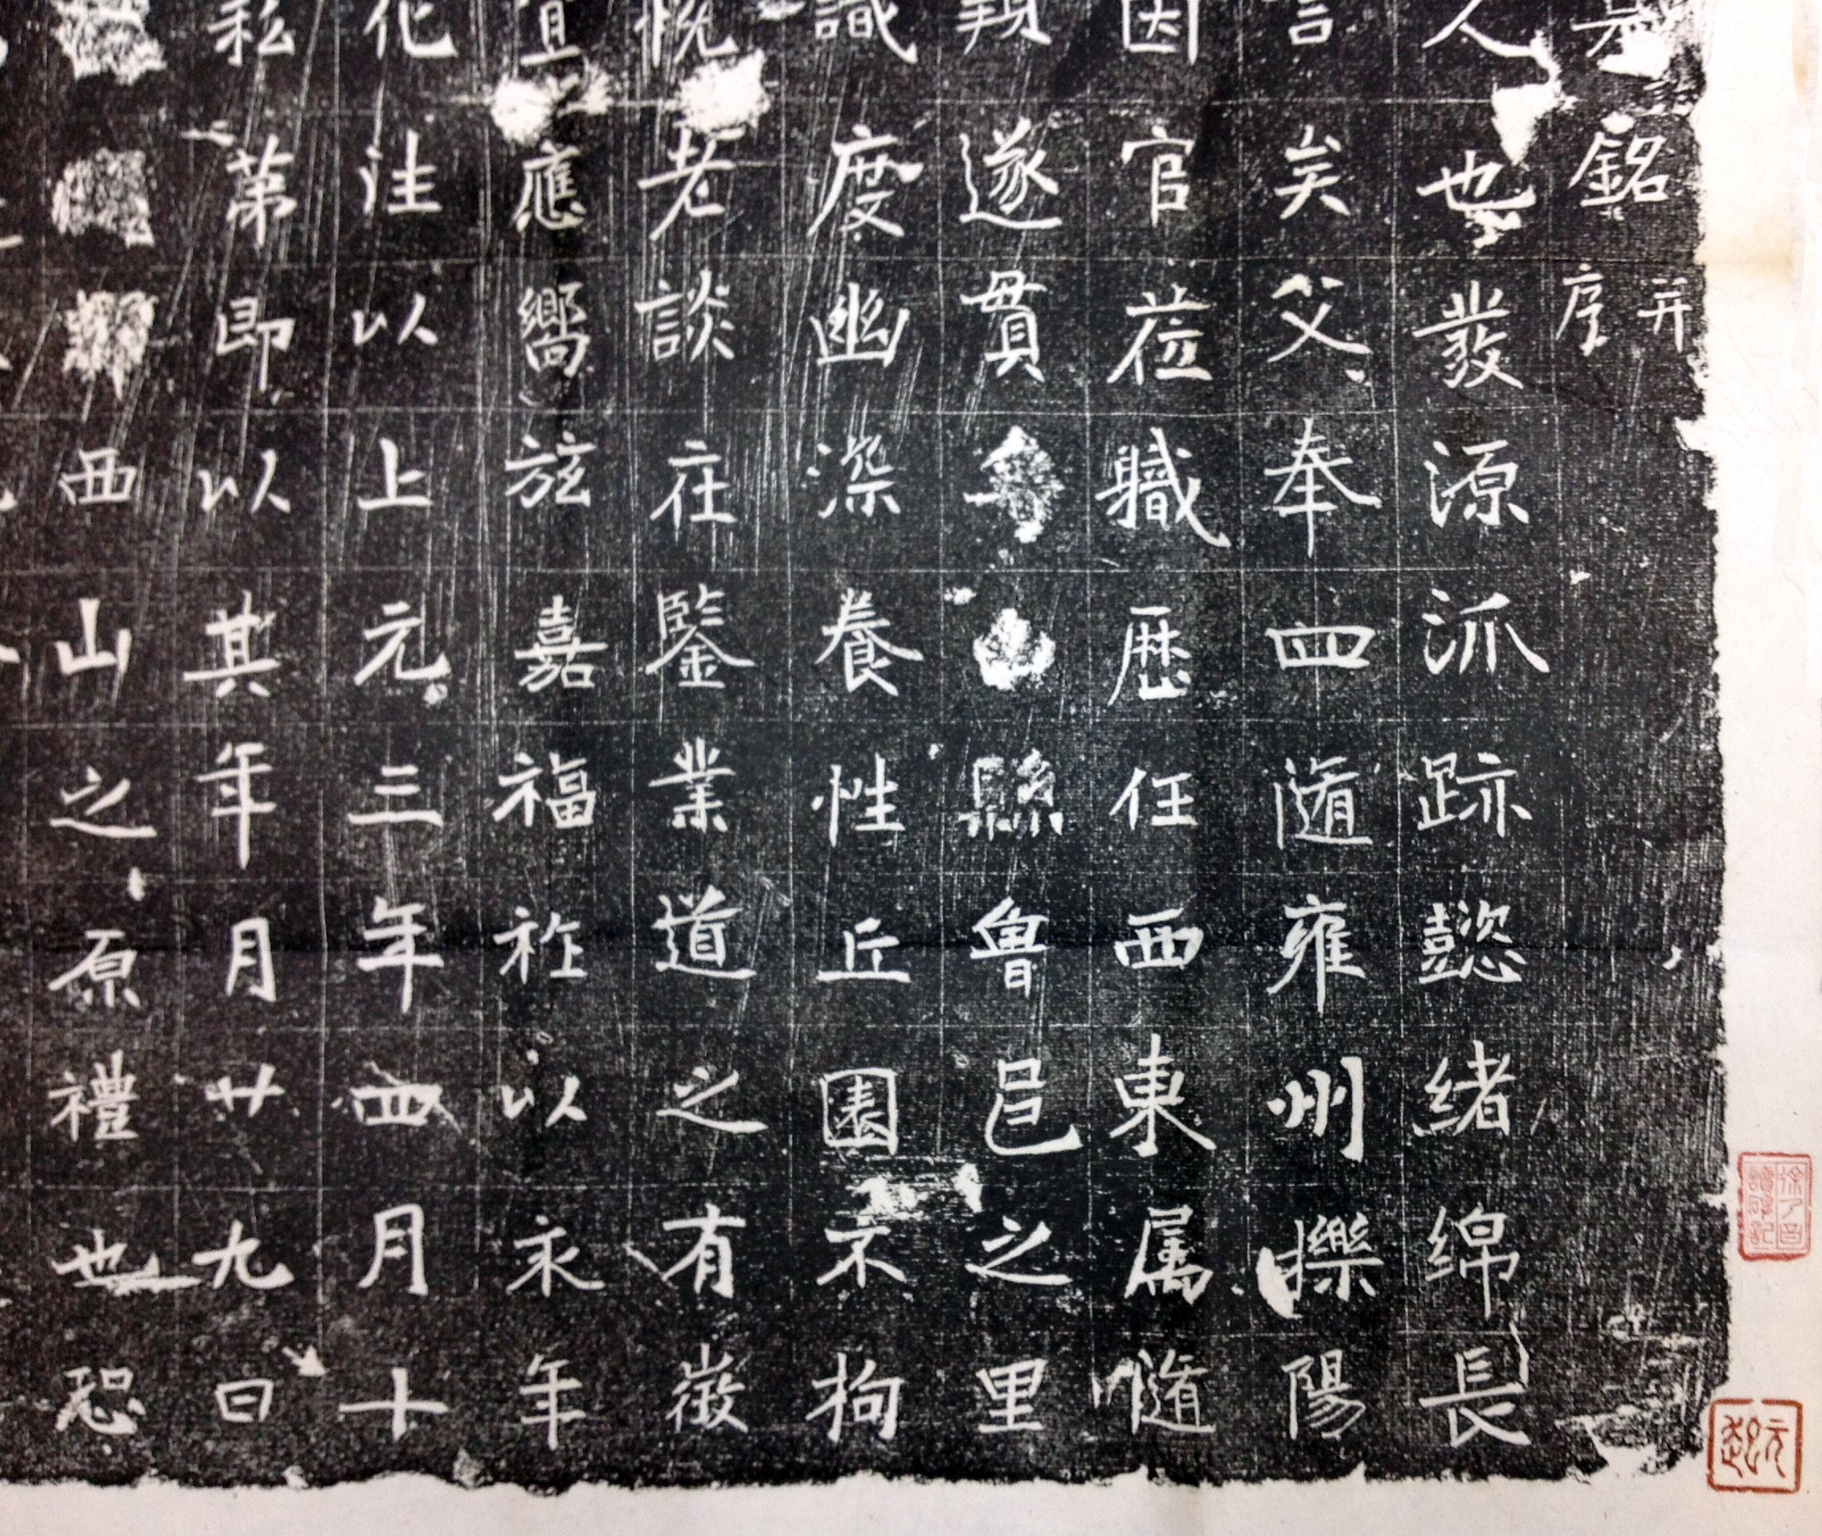 銘并序
人也發源派跡懿緒綿長
言矣父奉四隨雍州櫟陽
因官莅職歷任西東属隨
遂貫縣魯邑之里
識度幽深養性丘園不拘
概老談莊鑒業道之有徵
宜應嚮旌嘉福祚以永年
化洼以上元三年四月十
耘第即以其年月廿九日
西山之原禮也恐